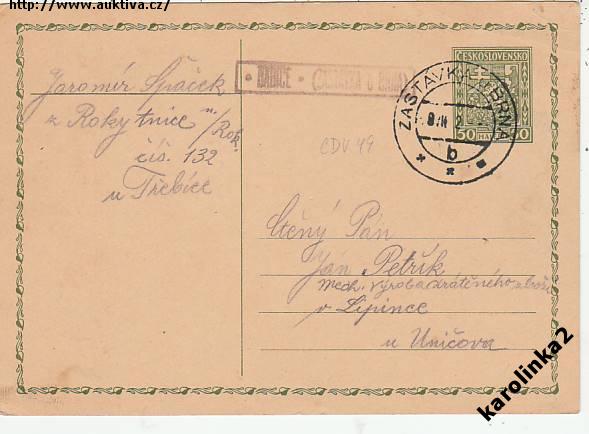 http://www.auktiva.cz/
Jaromír Špaček
z Rokytnice n/Rok.
čís. 132
u Třebíče
BABICE • (ZASTÁVKA U BRNA)
ČESKOSLOVENSKO
50 HAL
ZASTÁVKA U BRNA
b
CDV 49
Ctěný Pán
Ján Petřík
mech. výroba drátěného zboží
v Lipince
u Uničova
karolinka2